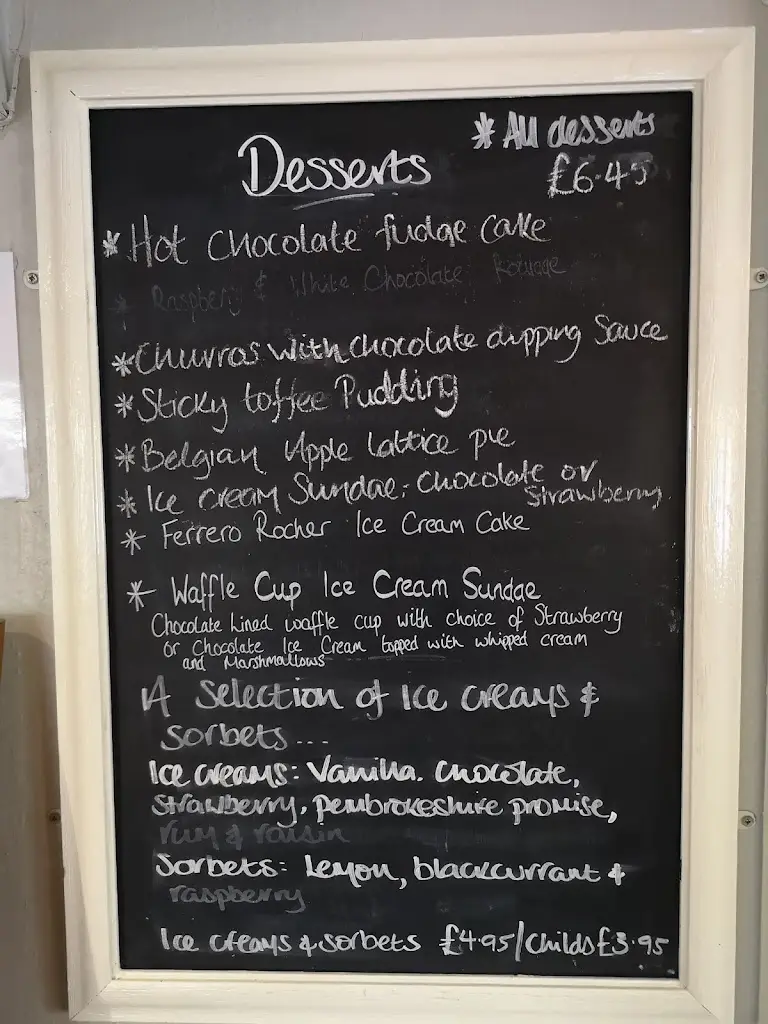 Desserts
* All desserts
£6.45
* Hot Chocolate fudge Cake
* Raspberry & White Chocolate Roulage
* Churros with chocolate dipping Sauce
* Sticky toffee Pudding
* Belgian Apple lattice pie
* Ice cream Sundae: Chocolate or
Strawberry
* Ferrero Rocher Ice Cream Cake
* Waffle Cup Ice Cream Sundae
Chocolate Lined waffle cup with choice of Strawberry
or Chocolate Ice Cream topped with whipped cream
and Marshmallows
A Selection of Ice creams &
Sorbets ...
Ice creams: Vanilla. Chocolate,
Strawberry, pembrokeshire promise,
rum & raisin
Sorbets: Lemon, blackcurrant &
raspberry
Ice creams & sorbets £4.95/Childs £3.95